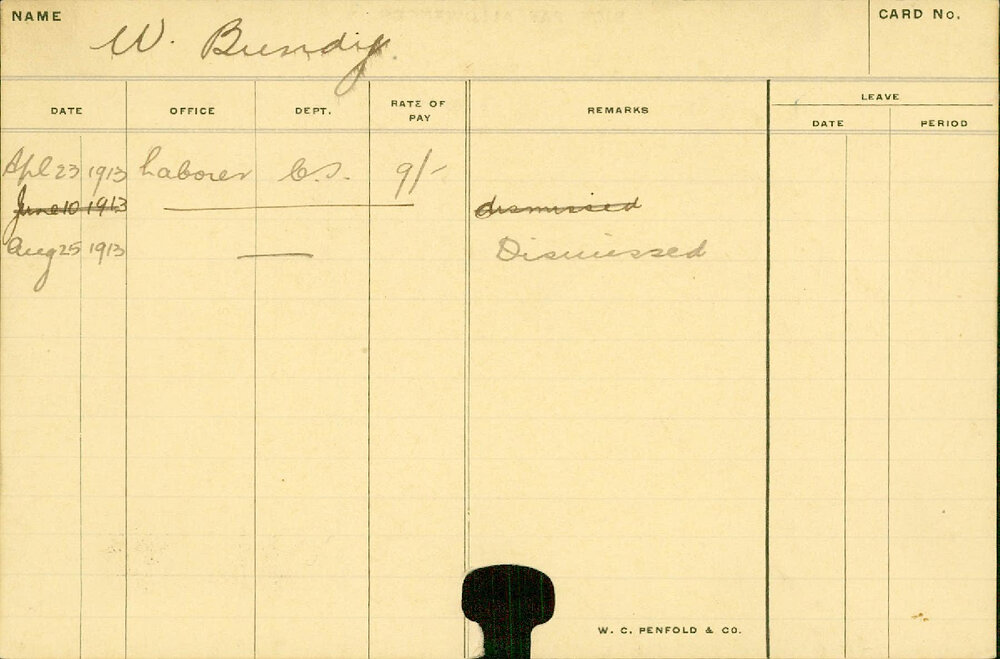 NAME
CARD No.
W. Bundy.
DATE OFFICE DEPT. RATE OF PAY REMARKS LEAVE
DATE PERIOD
Apl 23 1913 Laborer C.S. 9/-
June 10 1913 dismissed
Aug 25 1913 Dismissed
W. C. PENFOLD & CO.